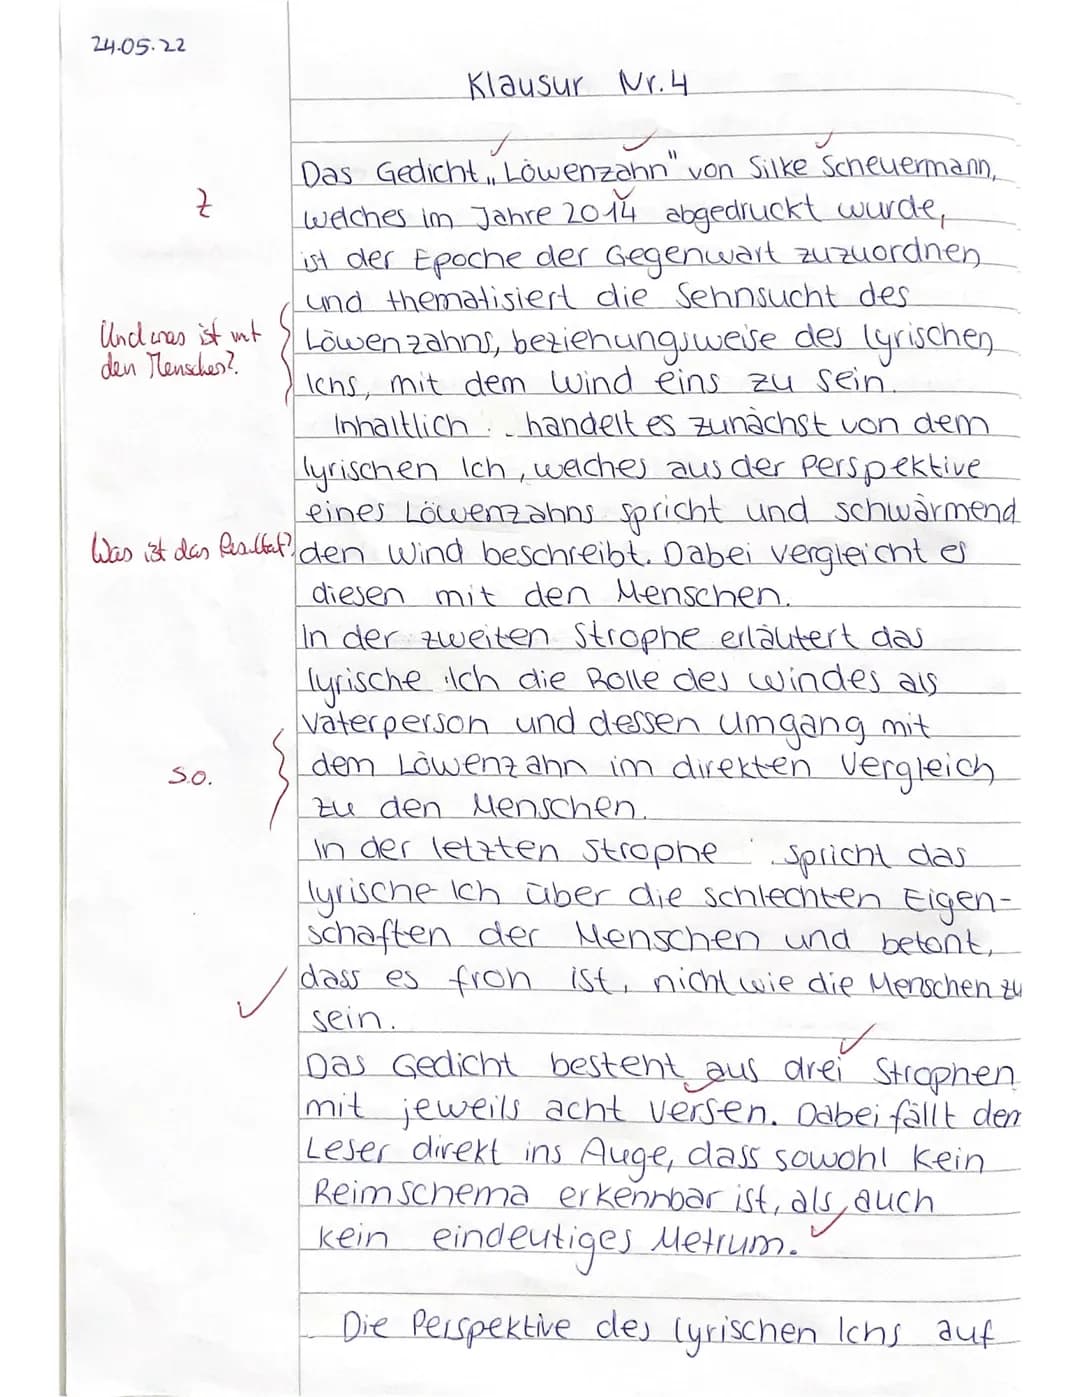 24.05.22
Klausur Nr. 4
Das Gedicht „Löwenzahn" von Silke Scheuermann,
z
welches im Jahre 2014 abgedruckt wurde,
ist der Epoche der Gegenwart zuzuordnen
und thematisiert die Sehnsucht des
Und was ist mit
Löwenzahns, beziehungsweise des lyrischen
den Menschen?
Ichs, mit dem Wind eins zu sein.
Inhaltlich handelt es zunächst von dem
lyrischen Ich, welches aus der Perspektive
eines Löwenzahns spricht und schwärmend
Was ist das Resultat?
den Wind beschreibt. Dabei vergleicht es
diesen mit den Menschen.
In der zweiten Strophe erläutert das
lyrische Ich die Rolle des Windes als
Vaterperson und dessen Umgang mit
s.o.
dem Löwenzahn im direkten Vergleich
zu den Menschen.
In der letzten Strophe spricht das
lyrische Ich über die schlechten Eigen-
schaften der Menschen und betont,
dass es froh ist, nicht wie die Menschen zu
sein.
Das Gedicht besteht aus drei Strophen
mit jeweils acht Versen. Dabei fällt dem
Leser direkt ins Auge, dass sowohl kein
Reimschema erkennbar ist, als auch
kein eindeutiges Metrum.
Die Perspektive des lyrischen Ichs auf